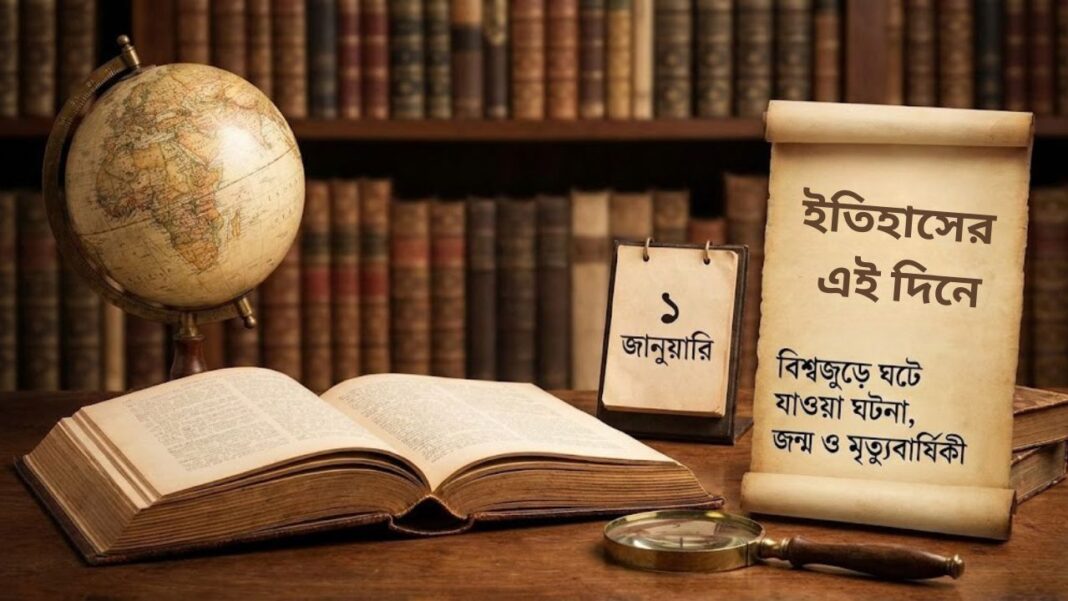 ১
জানুয়ারি
ইতিহাসের
এই দিনে
বিশ্বজুড়ে ঘটে
যাওয়া ঘটনা,
জন্ম ও মৃত্যুবার্ষিকী